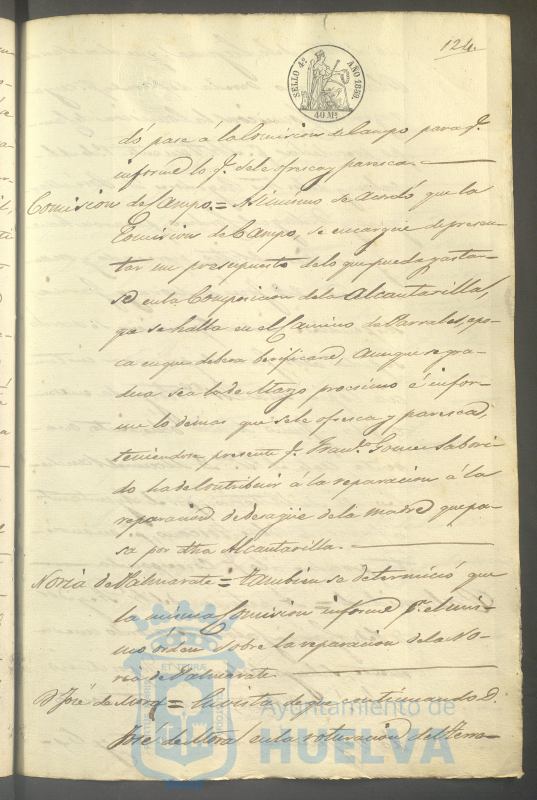 124.
SELLO 4º AÑO 1839.
40 Ms
dó pase á la Comision de Campo para q.e
informe lo q.e se le ofresca y paresca.
Comision de Campo. = Asimismo se acordó que la
Comision de Campo, se encargue de presen-
tar un presupuesto de lo que pueda gastar-
se en la Composicion de la Alcantarilla,
que se halla en el Camino de Parrales, epo-
ca en que debera berificarse, aunque se gra-
dua sea la de Marzo procsimo é infor-
me lo demas que se le ofresca y paresca,
teniendose presente q.e Fran.co Gomez Sabori-
do ha de Contribuir á la reparacion á la
reparacion de desagüe de la madre que pa-
sa por dha Alcantarilla.
Noria de Valmarate = tambien se determinó que
la misma Comision informe p.r el mis-
mo orden sobre la reparacion de la No-
ria de Valmarate.
D. José de Mora = En vista de que continuando D.
José de Mora en la roturacion del terre-
ET TERRÆ
Ayuntamiento de
HUELVA